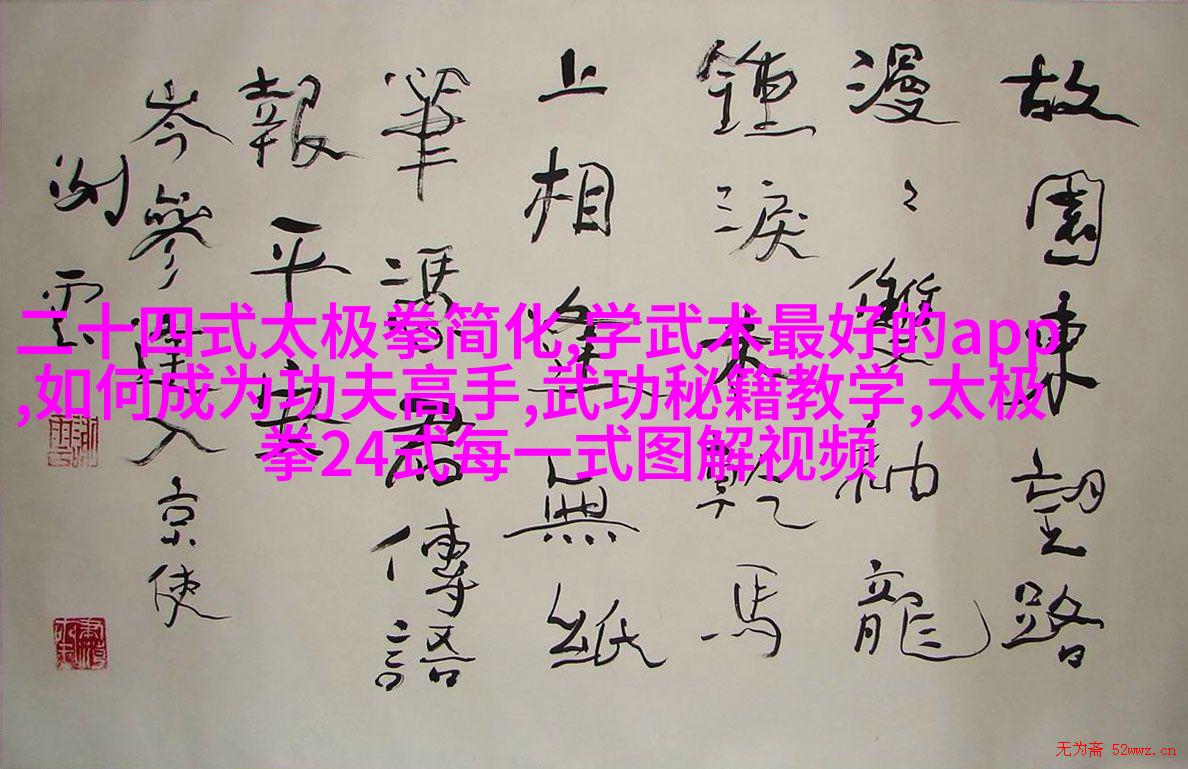 故園東望路
漫〻雙袖龍
鍾淚乾馬
上相逢無紙
筆憑君傳語
報平安
岑參逢入京使
雲
二十四式太极拳简化,学武术最好的app
,如何成为功夫高手,武功秘籍教学,太极
拳24式每一式图解视频
无为斋 52wwz.cn